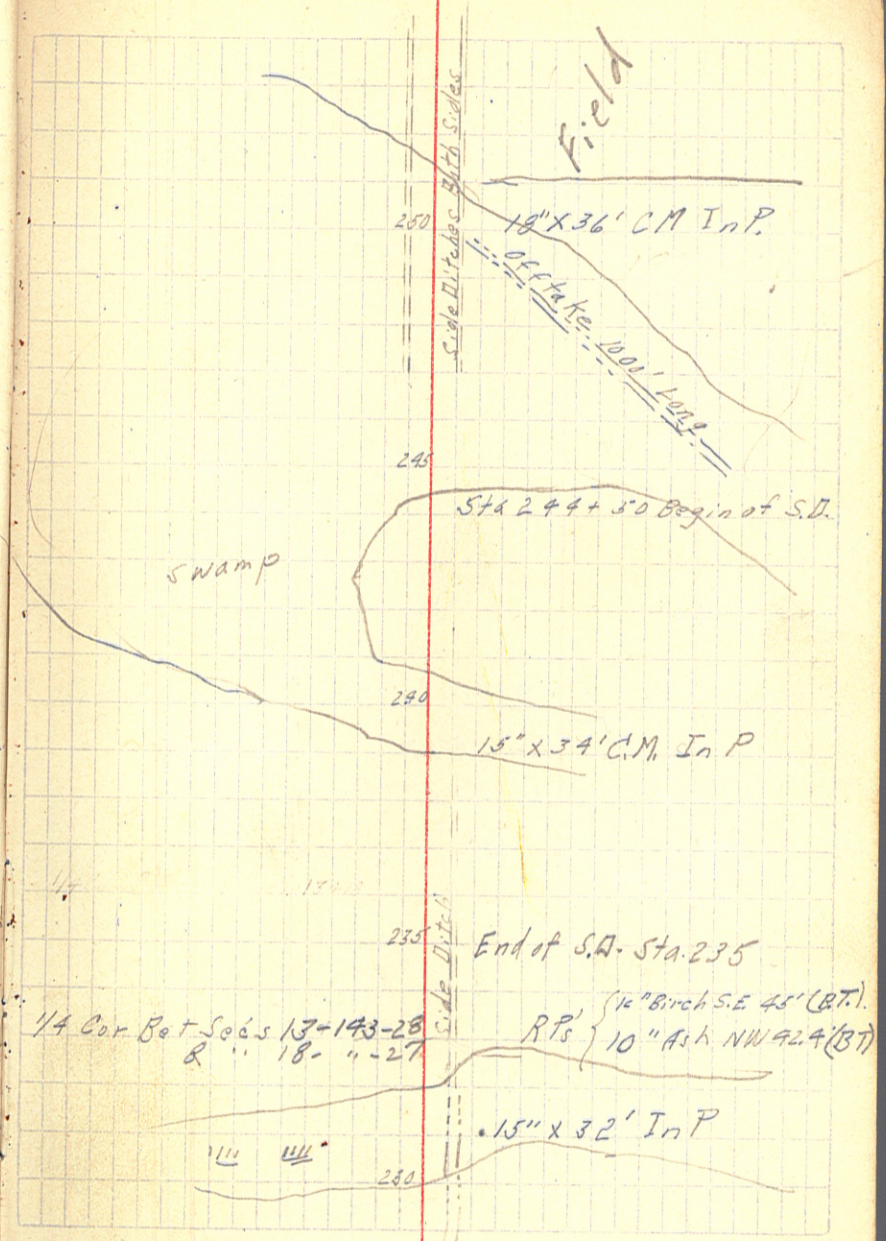 Field
Side Ditches Both Sides
250
18" X 36' C M In P.
Offtake 1000' Long
245
Sta 244 + 50 Begin of S.D.
Swamp
240
15" X 34' C.M. In P
Side Ditch
235
End of S.D. Sta. 235
1/4 Cor Bet Secs 13-143-28
& " 18- " -27
RP's
Birch S.E 45' (B.T.)
10" Ash NW 42.4' (BT)
15" X 32' In P
230